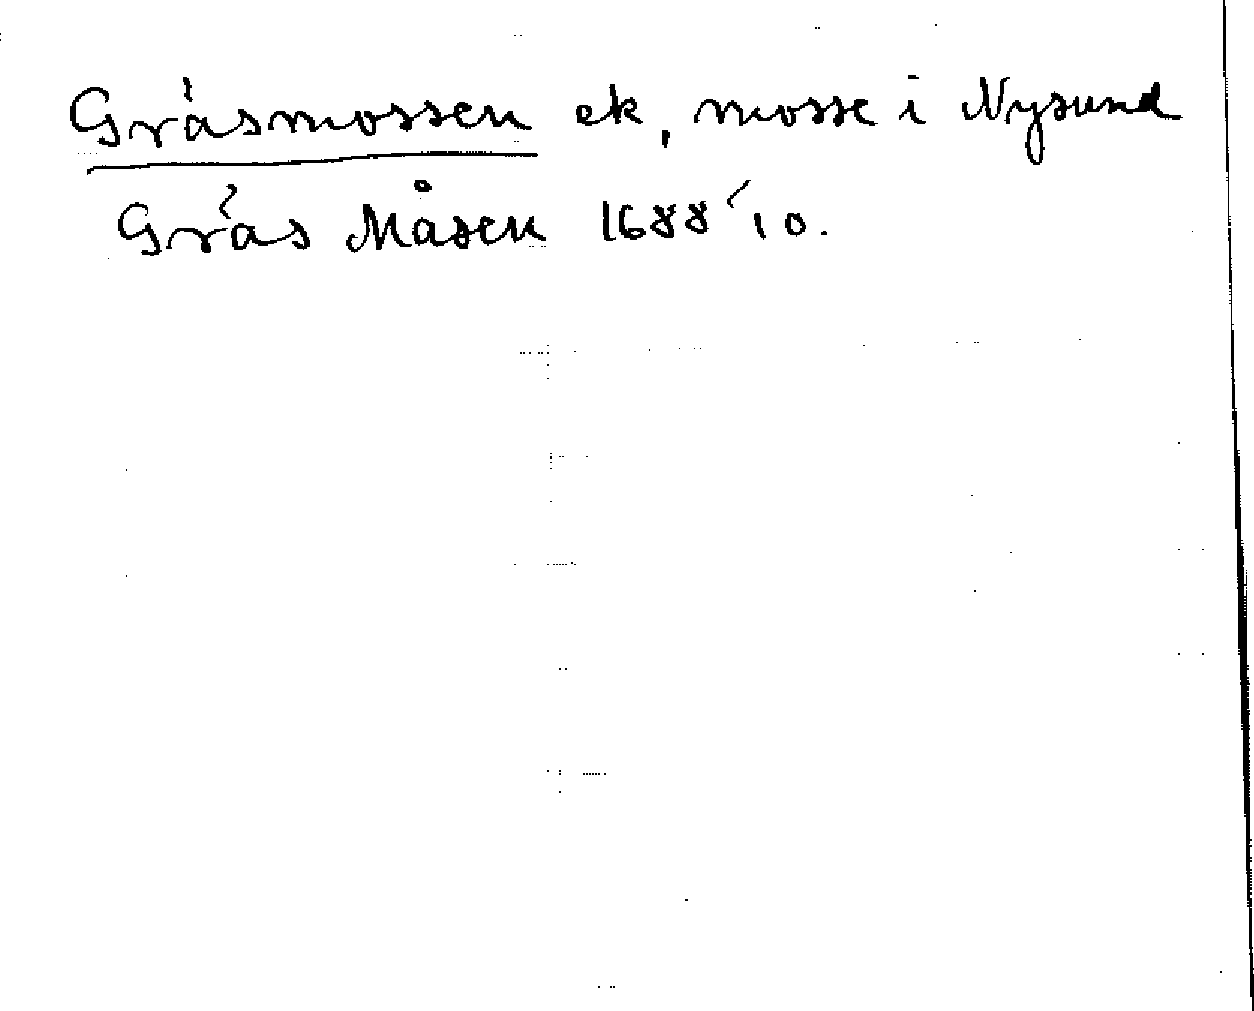 Gräsmossen ek, mosse i Nysund
Gräs Måsen 1688 10.